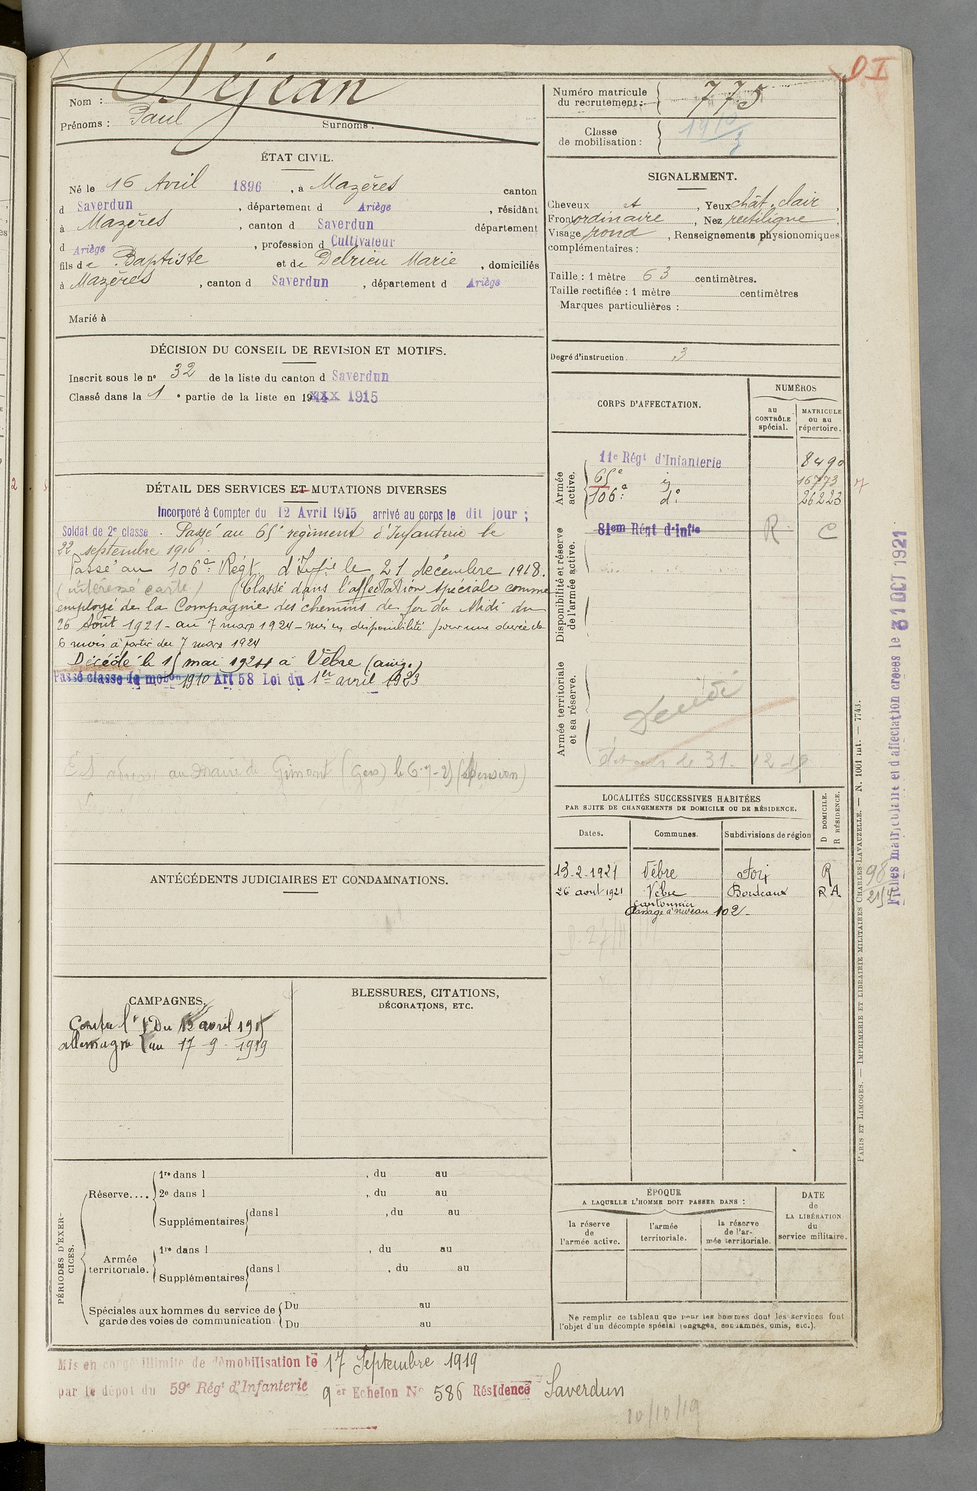 D I
Nom : Déjean
Prénoms : Paul Surnoms :
Numéro matricule du recrutement : 775
Classe de mobilisation :
ÉTAT CIVIL.
Né le 16 Avril 1896, à Mazères canton
d Saverdun, département d Ariège, résidant
à Mazères, canton d Saverdun département
d Ariège, profession d Cultivateur
fils de Baptiste et de Delrieu Marie, domiciliés
à Mazères, canton d Saverdun, département d Ariège
Marié à
SIGNALEMENT.
Cheveux, Yeux chât. clair,
Front ordinaire, Nez rectiligne,
Visage rond, Renseignements physionomiques
complémentaires :
Taille : 1 mètre 63 centimètres.
Taille rectifiée : 1 mètre centimètres
Marques particulières :
Degré d'instruction 3
DÉCISION DU CONSEIL DE REVISION ET MOTIFS.
Inscrit sous le n° 32 de la liste du canton d Saverdun
Classé dans la 1e partie de la liste en 1915
DÉTAIL DES SERVICES ET MUTATIONS DIVERSES
Incorporé à Compter du 12 Avril 1915 arrivé au corps le dit jour ;
Soldat de 2e classe. Passé au 65e régiment d'Infanterie le
22 septembre 1916.
Passé au 106e Régt d'Infie le 21 décembre 1918.
(intéressé carte) (Classé dans l'affectation spéciale comme
employé de la Compagnie des chemins de fer du Midi du
26 Août 1921 - au 7 mars 1924 - mis en disponibilité pour une durée de
6 mois à partir du 7 mars 1924
Décédé le mai à Vèbre
Passé classe de mobon 1910 Art 58 Loi du 1er avril 1923
au maire de Gimont (Gers) le
CORPS D'AFFECTATION.
NUMÉROS
au CONTRÔLE spécial.
MATRICULE ou au répertoire.
Armée active.
11e Régt d'Infanterie 8490
65e 16773
106e d° 26223
Disponibilité et réserve de l'armée active.
81em Régt d'Infie R C
Armée territoriale et sa réserve.
le 31. 12
LOCALITÉS SUCCESSIVES HABITÉES
PAR SUITE DE CHANGEMENTS DE DOMICILE OU DE RÉSIDENCE.
Dates. Communes. Subdivisions de région D DOMICILE. R RÉSIDENCE.
13-2-1921 Vèbre Foix R
26 aout 1921 Vèbre Bordeaux R A
cantonnier
Passage à niveau 102-
ANTÉCÉDENTS JUDICIAIRES ET CONDAMNATIONS.
CAMPAGNES.
Contre l' Du 12 avril 1915
allemagne au 17-9-1919
BLESSURES, CITATIONS,
DÉCORATIONS, ETC.
PÉRIODES D'EXERCICES.
Réserve....
1re dans l , du au
2e dans l , du au
Supplémentaires dans l , du au
Armée territoriale.
1re dans l , du au
Supplémentaires dans l , du au
Spéciales aux hommes du service de garde des voies de communication.
Du au
Du au
ÉPOQUE
A LAQUELLE L'HOMME DOIT PASSER DANS :
la réserve de l'armée active.
l'armée territoriale.
la réserve de l'armée territoriale.
DATE de LA LIBÉRATION du service militaire.
Ne remplir ce tableau que pour les hommes dont les services font
l'objet d'un décompte spécial (engagés, condamnés, omis, etc.).
PARIS ET LIMOGES. — IMPRIMERIE ET LIBRAIRIE MILITAIRES CHARLES-LAVAUZELLE. — N. 1001 int. — 7743.
Fiches matricule et d'affectation créées le 31 OCT 1921
Mis en congé illimité de démobilisation le 17 Septembre 1919
par le dépôt du 59e Régt d'Infanterie 9er Echelon N° 586 Résidence Saverdun
10/10/19